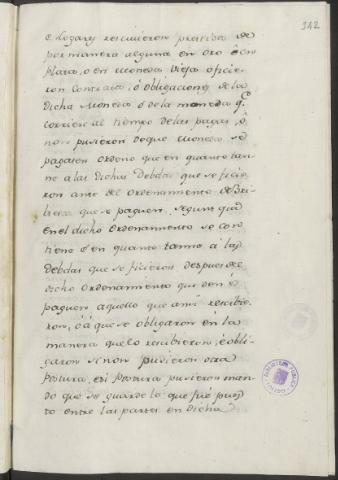 342
é Logares rescivieron prestido de
por manera alguna en oro ó en
plata, ó en moneda vieja ó ficie-
ron contratos, ó obligaciones de la
dicha moneda ó de la moneda q.e
corriere al tiempo de las pagas, ó
non pusieron de que moneda se
pagasen ordeno que en quanto tan-
ne a las dichas debdas que se ficie-
ron ante del ordenamiento de Bri-
biesca que se paguen segunt que
en el dicho ordenamiento se con-
tiene é en quanto tanne á las
debdas que se ficieron despues del
dicho ordenamiento que den é
paguen aquello que ansi rescibie-
ron, ó á que se obligaron en la
manera que lo rescibieron, é obli-
garon si non pusieron otra
postura, é si postura pusieron man-
do que se guarde lo que fué pues-
to entre las partes en dicha